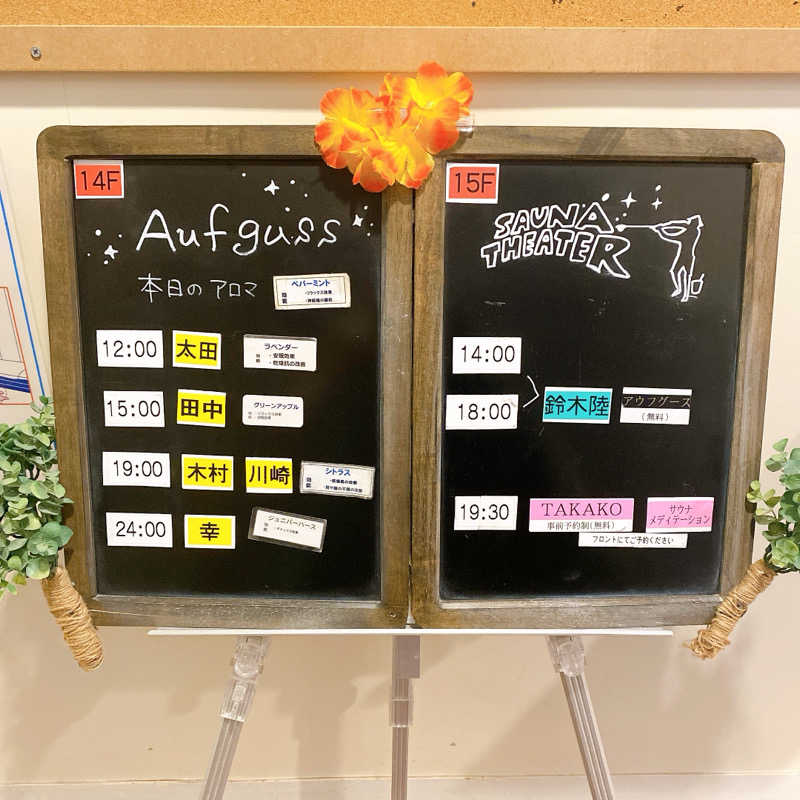 14F
Aufguss
本日のアロマ
ペパーミント
・リラックス効果
12:00 太田 ラベンダー
・安眠効果
15:00 田中 グリーンアップル
19:00 木村 川崎 シトラス
24:00 幸 ジュニパーハース
15F
SAUNA
THEATER
14:00
18:00 鈴木陸 アウフグース
(無料)
19:30 TAKAKO サウナ
事前予約制(無料) メディテーション
フロントにてご予約ください